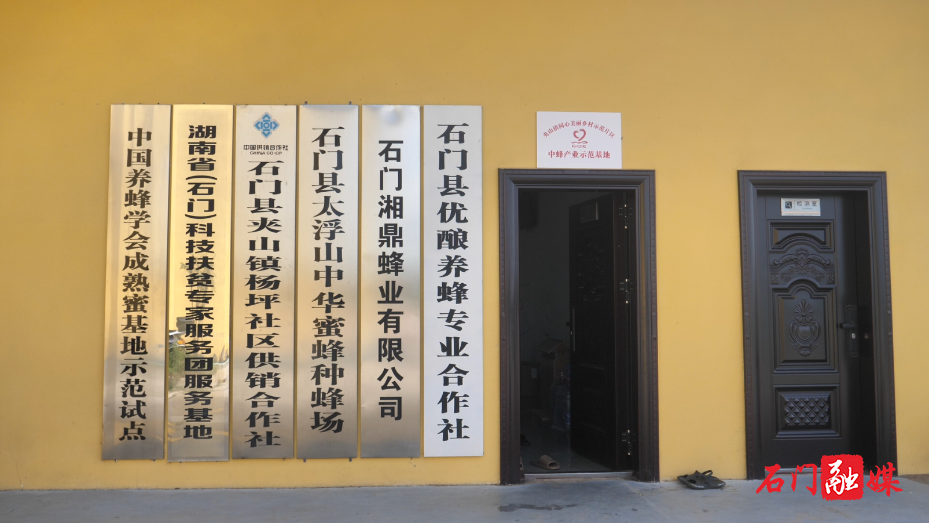 中国养蜂学会成熟蜜基地示范试点
湖南省(石门)科技扶贫专家服务团服务基地
中国供销合作社
CHINA CO-OP
石门县夹山镇杨坪社区供销合作社
石门县太浮山中华蜜蜂种蜂场
石门湘鼎蜂业有限公司
石门县优酿养蜂专业合作社
夹山镇同心美丽乡村示范片区
中蜂产业示范基地
检测室
石门融媒